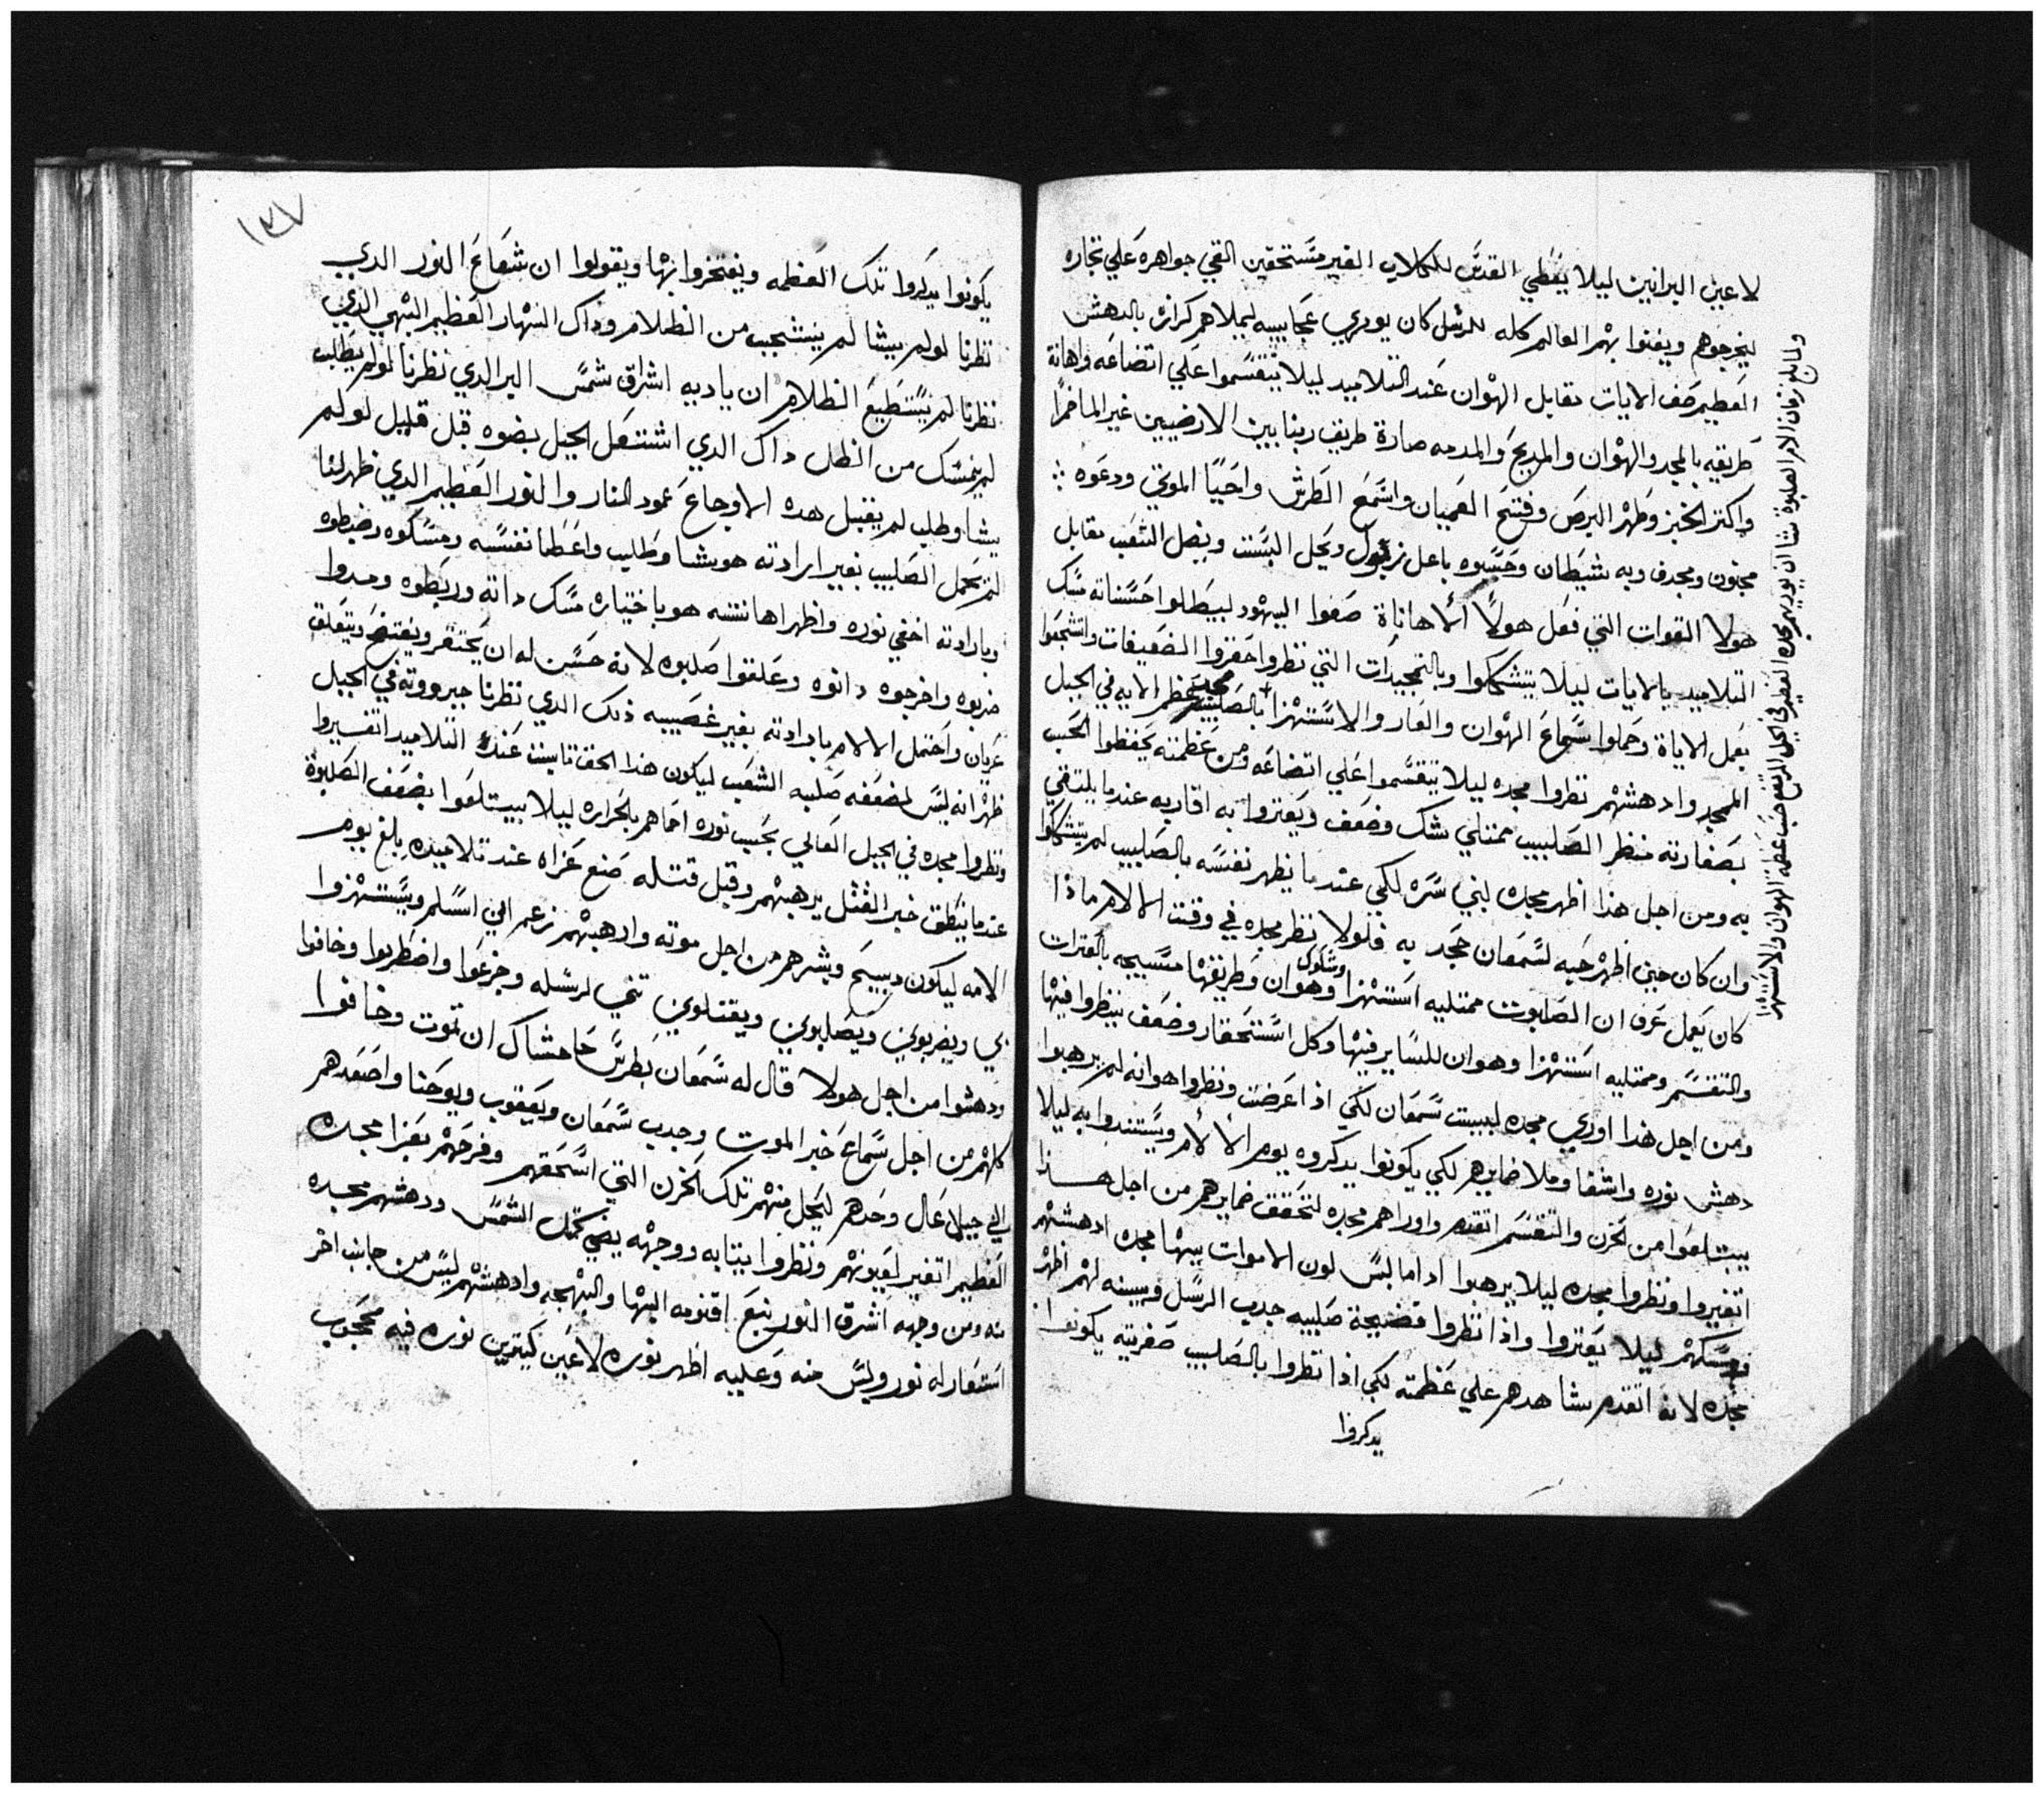 لاعين البرانيين ليلا يغطي القدس للكلاب الغير مستحقين القي جواهره علي تجاره
ليخرجوهم ويغنوا بهم العالم كله للرسل كان يوري عجايبه ليملاهم كرازه بالدهش
العظيم صف الايات مقابل الهوان عند التلاميد ليلا يتقسموا علي اتضاعه واهانة
طريقه بالمجد والهوان والمديح والمدمه صارة طريق ربنا بين الارضيين غير الماخرا
واكتر الخبز وطهر البرص وفتح العميان واسمع الطرش واحيا الموتي ودعوه :
مجنون ومجدف وبه شيطان وحسبوه باعل زبول ويحل السبت ويضل الشعب مقابل
هولا القوات التي فعل هولا الاهاناة صفوا اليهود ليبطلوا حسناته مسك
التلاميد بالايات ليلا يتشككوا وبالتمجيدات التي نظروا احقروا الضعيفات واتشجعوا
بعمل الاياة وحملوا سماع الهوان والعار والاستهزا بالصليب عظم الايه في الجبل
المجد وادهشهم نظروا مجده ليلا يتقسموا علي اتضاعه ومن عظمته يحفظوا الحب
بصغارته منظر الصليب ممتلي شك وضعف ويعتروا به اقاربه عندما يلتقي
به ومن اجل هذا اظهر مجده لبني سره لكي عندما يظهر نفسه بالصليب لم يتشككوا
وان كان حين اظهر حبه لسمعان جحد به فلولا نظر مجده في وقت الالام ماذا
وشكوك
كان يعمل عرف ان الصابوت ممتليه استهزا وهوان وطريقها مسيجه بالعترات
والتقسم وممتليه استهزا وهوان للساير فيها وكل استحقار وضعف ينظروا فيها
ومن اجل هذا اوري مجده لبيت سمعان لكي اذا عرضت ونظروا هوانه لم يرهبوا
دهش نوره واشفا وملا ضمايرهم لكي يكونوا يدكروه يوم الالام ويستندوا به ليلا
يبتلعوا من الحزن والتقسم اتقدم واوراهم مجده لتحقق ضمايرهم من اجل هذا
اتغيروا ونظروا مجده ليلا يرهبوا اداما لبس لون الاموات ببها مجده ادهشهم
ومسكهم ليلا يعتروا واذا نظروا فضيحة صليبه جدب الرسل وبينه لهم اظهر
مجده لانه اتقدم شاهدهم علي عظمته لكي اذا نظروا بالصليب صغريته يكونوا
يدكروا
ولما بلغ زمان الام الصلبوة شا ان يوريهم مجده العظيم في الجبل المرتفع حسب عظمة الهوان والاستهزا
١٣٧
يكونوا يدكروا تلك العظمه ويفتخروا بها ويقولوا ان شعاع النور الدي
نظرنا لو لم يشا لم ينشجب من الظلام وذاك النهار العظيم البهي الذي
نظرنا لم يستطيع الظلام ان ياديه اشراق شمس البر الدي نظرنا لو لم يطلب
لم يمسك من الظل داك الدي اشتعل الجبل بضوه قبل قليل لو لم
يشا وطلب لم يقبل هده الاوجاع عمود النار والنور العظيم الدي ظهر لنا
لم يحمل الصليب بغير ارادته هو يشا وطلب واعطا نفسه ومسكوه وضبطوه
وبارادته اخفي نوره واظهر اهانته هو باختياره مسك داته وربطوه ومدوا
ضربوه واخرجوه دانوه وعلقوا صلبوه لانه حسن له ان يحتقر ويفتضح ويتعلق
عريان واحتمل الالام بارادته بغير غصيبه ذلك الدي نظرنا جبرووته في الجبل
ظهر انه ليس لضعفه صلبه الشعب ليكون هذا الحق تابت عند التلاميد اتفسروا
ونظروا مجده في الجبل العالي بحبيب نوره احماهم بالحراره ليلا يبتلعوا بضعف الصلبوة
عندما ينطق خبر القتل يرهبهم وقبل قتله صنع عزاه عند تلاميده بلغ يوم
الامه ليكون دبيح وبشرهم من اجل موته وارهبهم زعم اني اسلم ويستهزوا
بي ويضربوني ويصلبوني ويقتلوني تني لرسله وجزعوا واضطربوا وخافوا
ودهشوا من اجل هولا قال له سمعان بطرس حاحشاك ان تموت وخافوا
كلهم من اجل سماع خبر الموت وجدب سمعان ويعقوب ويوحنا واصعدهم
الي جبل عال وحدهم ليحل منهم تلك الحزن التي اسحقهم وفرحهم بعزا مجده
العظيم اتغير لعيونهم ونظروا بيتابه ووجهه يضي كمتل الشمس ودهشهم مجده
منه ومن وجهه اشرق النور ينبع اقنومه البها والبهجه وادهشهم ليس من جانب اخر
استعار له نور وليس منه وعليه اظهر نوره لاعين كتيرين نوره فيه محجوب